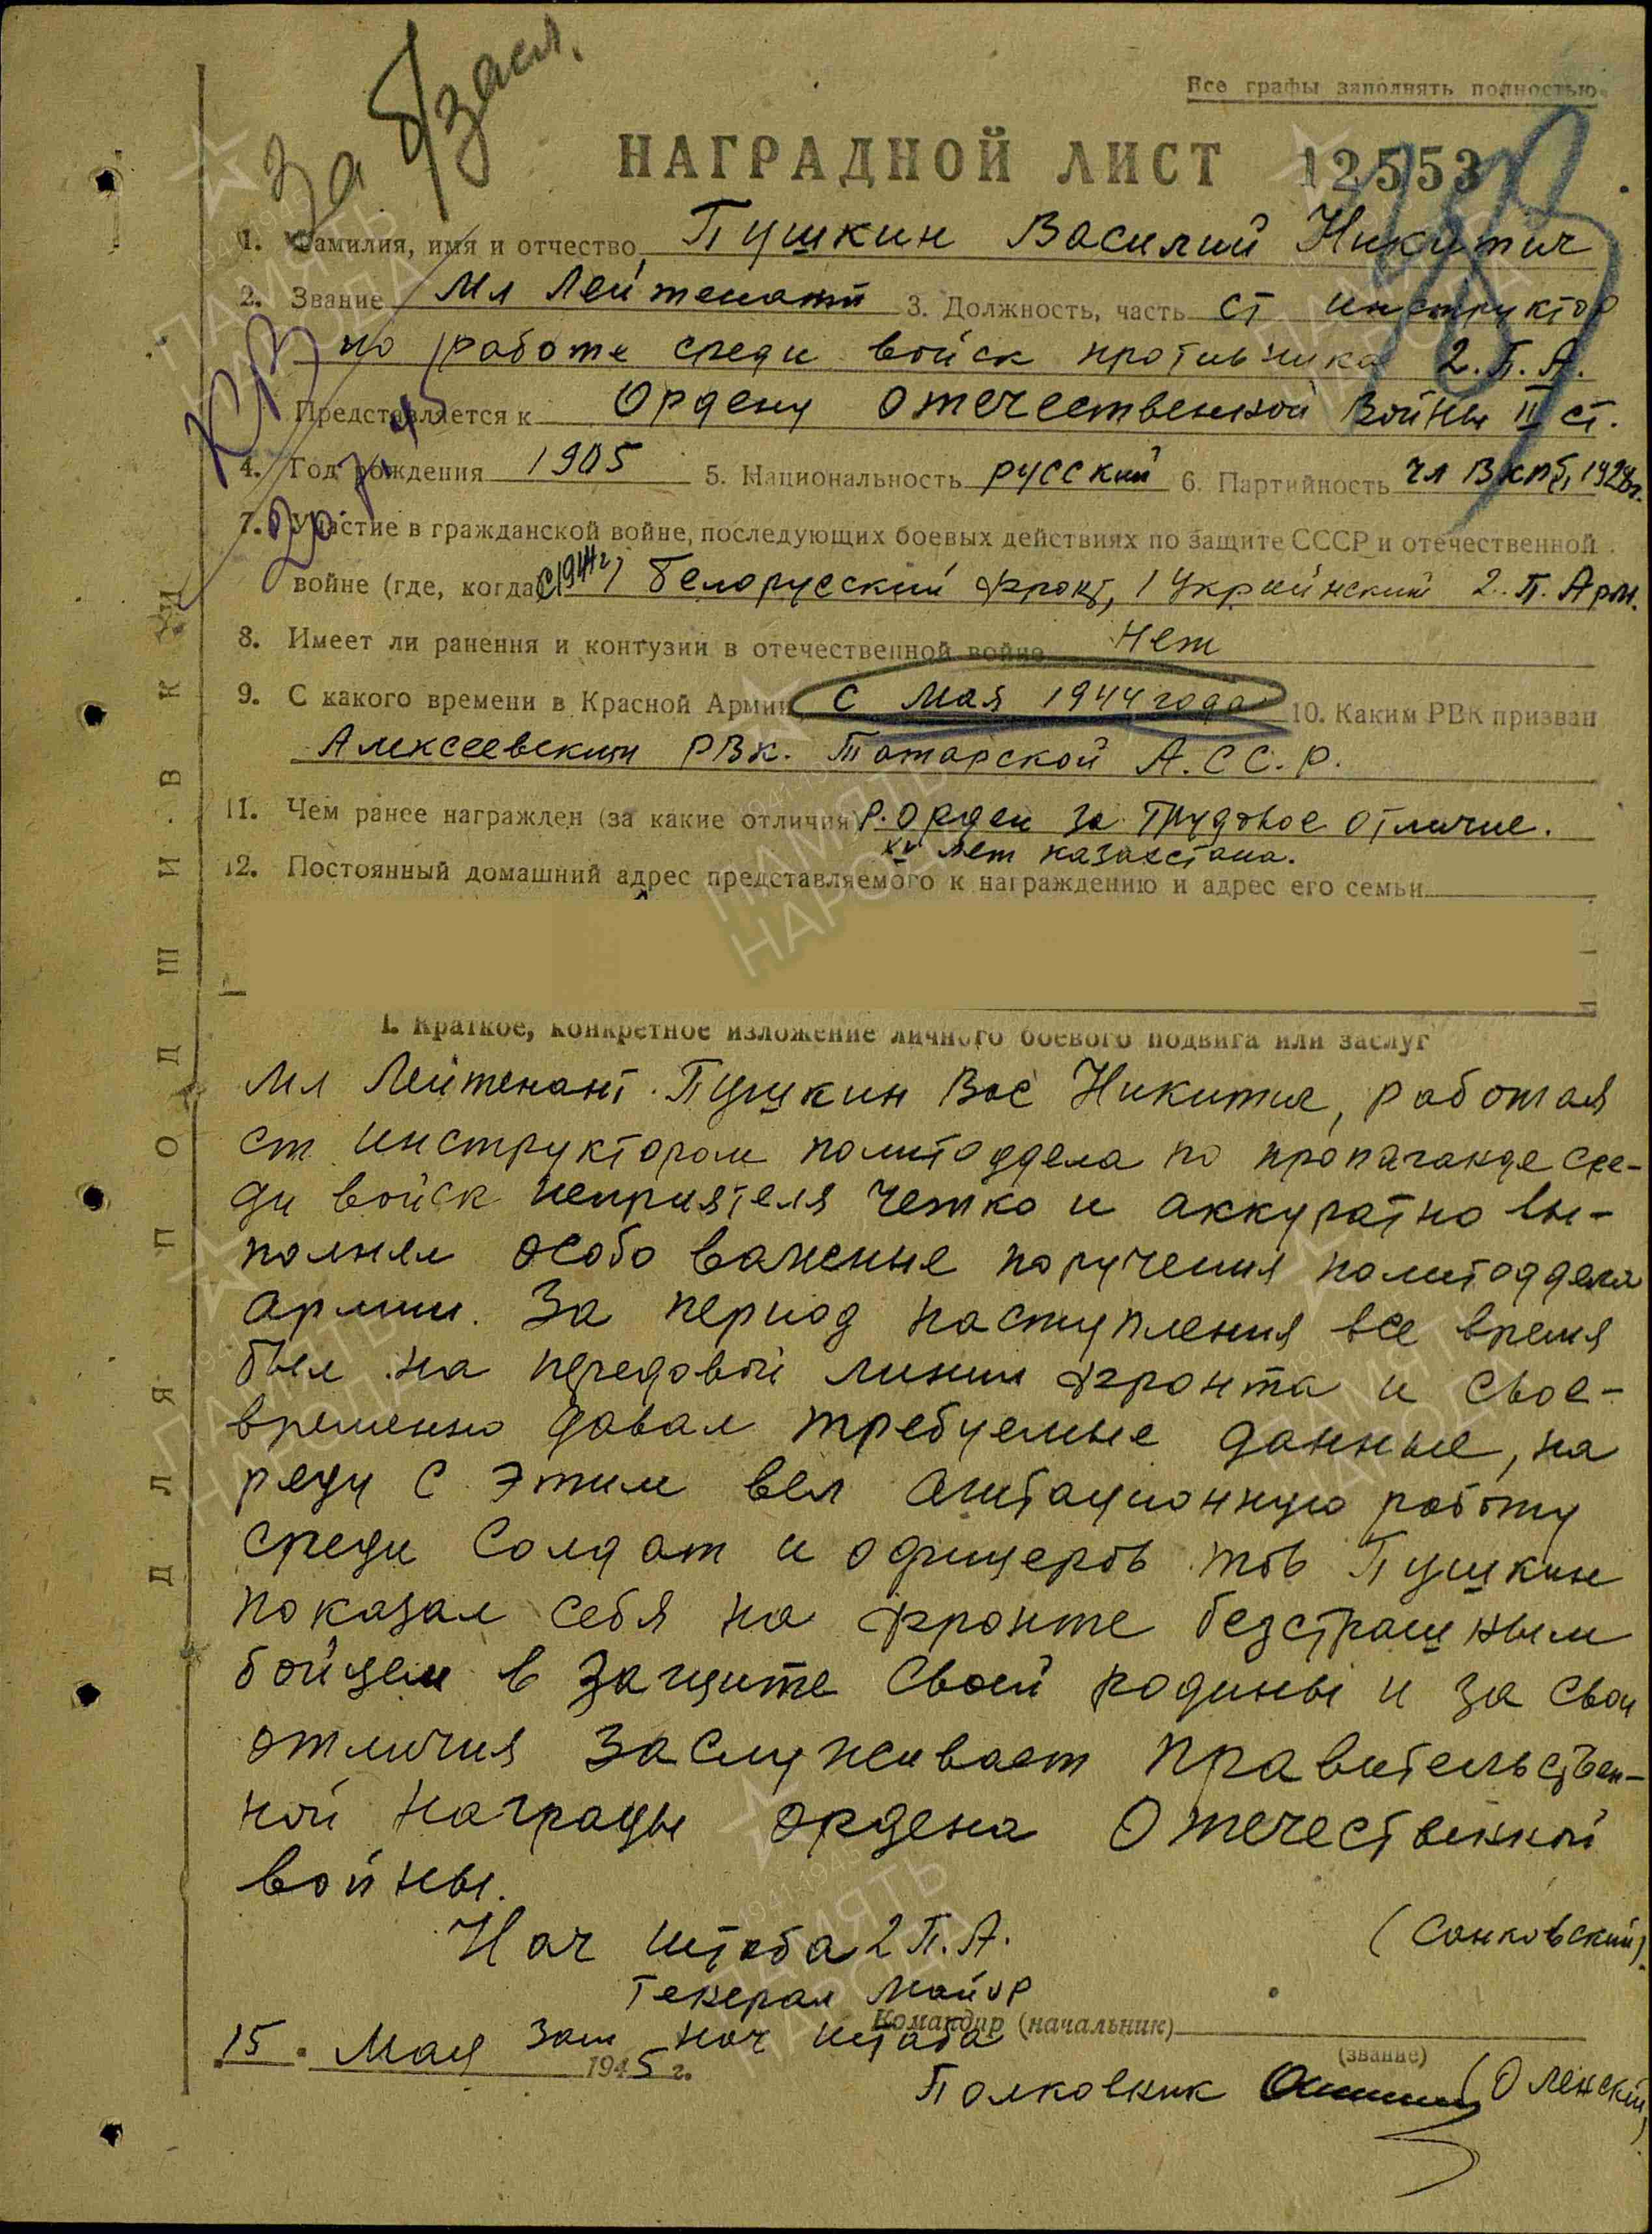 За 8/засл.
Все графы заполнять полностью.
НАГРАДНОЙ ЛИСТ 12553
1. Фамилия, имя и отчество Пушкин Василий Никитич
2. Звание Мл Лейтенант 3. Должность, часть ст инструктор
по работе среди войск противника 2.П.А.
Представляется к Ордену Отечественной Войны II ст.
4. Год рождения 1905 5. Национальность русский 6. Партийность чл ВКПб, 1928г.
7. Участие в гражданской войне, последующих боевых действиях по защите СССР и отечественной
войне (где, когда) с 1944г 1 Белорусский фронт, 1 Украинский 2. П. Арм.
8. Имеет ли ранения и контузии в отечественной войне Нет
9. С какого времени в Красной Армии с мая 1944 года 10. Каким РВК призван
Алексеевским РВК. Татарской А.С.С.Р.
11. Чем ранее награжден (за какие отличия) Орден за Трудовое отличие.
XV лет казахстана.
12. Постоянный домашний адрес представляемого к награждению и адрес его семьи
I. Краткое, конкретное изложение личного боевого подвига или заслуг
Мл Лейтенант Пушкин Вас Никитич, работая
ст инструктором политоддела по пропаганде сре-
ди войск неприятеля четко и аккуратно вы-
полнял особо важные поручения политоддела
армии. За период наступления все время
был на передовой линии фронта и свое-
временно давал требуемые данные, на
ряду с этим вел агитационную работу
среди солдат и офицеров тов Пушкин
показал себя на фронте безстрашным
бойцем в защите своей родины и за свои
отличия заслуживает правительствен-
ной награды ордена Отечественной
войны.
Нач штаба 2 П.А.
Генерал Майор
(Санковский)
Командир (начальник)
(звание)
Зам нач штаба
15. Мая 1945 г.
Полковник (Оленский)
ДЛЯ ПОДШИВКИ
ПАМЯТЬ НАРОДА
1941-1945